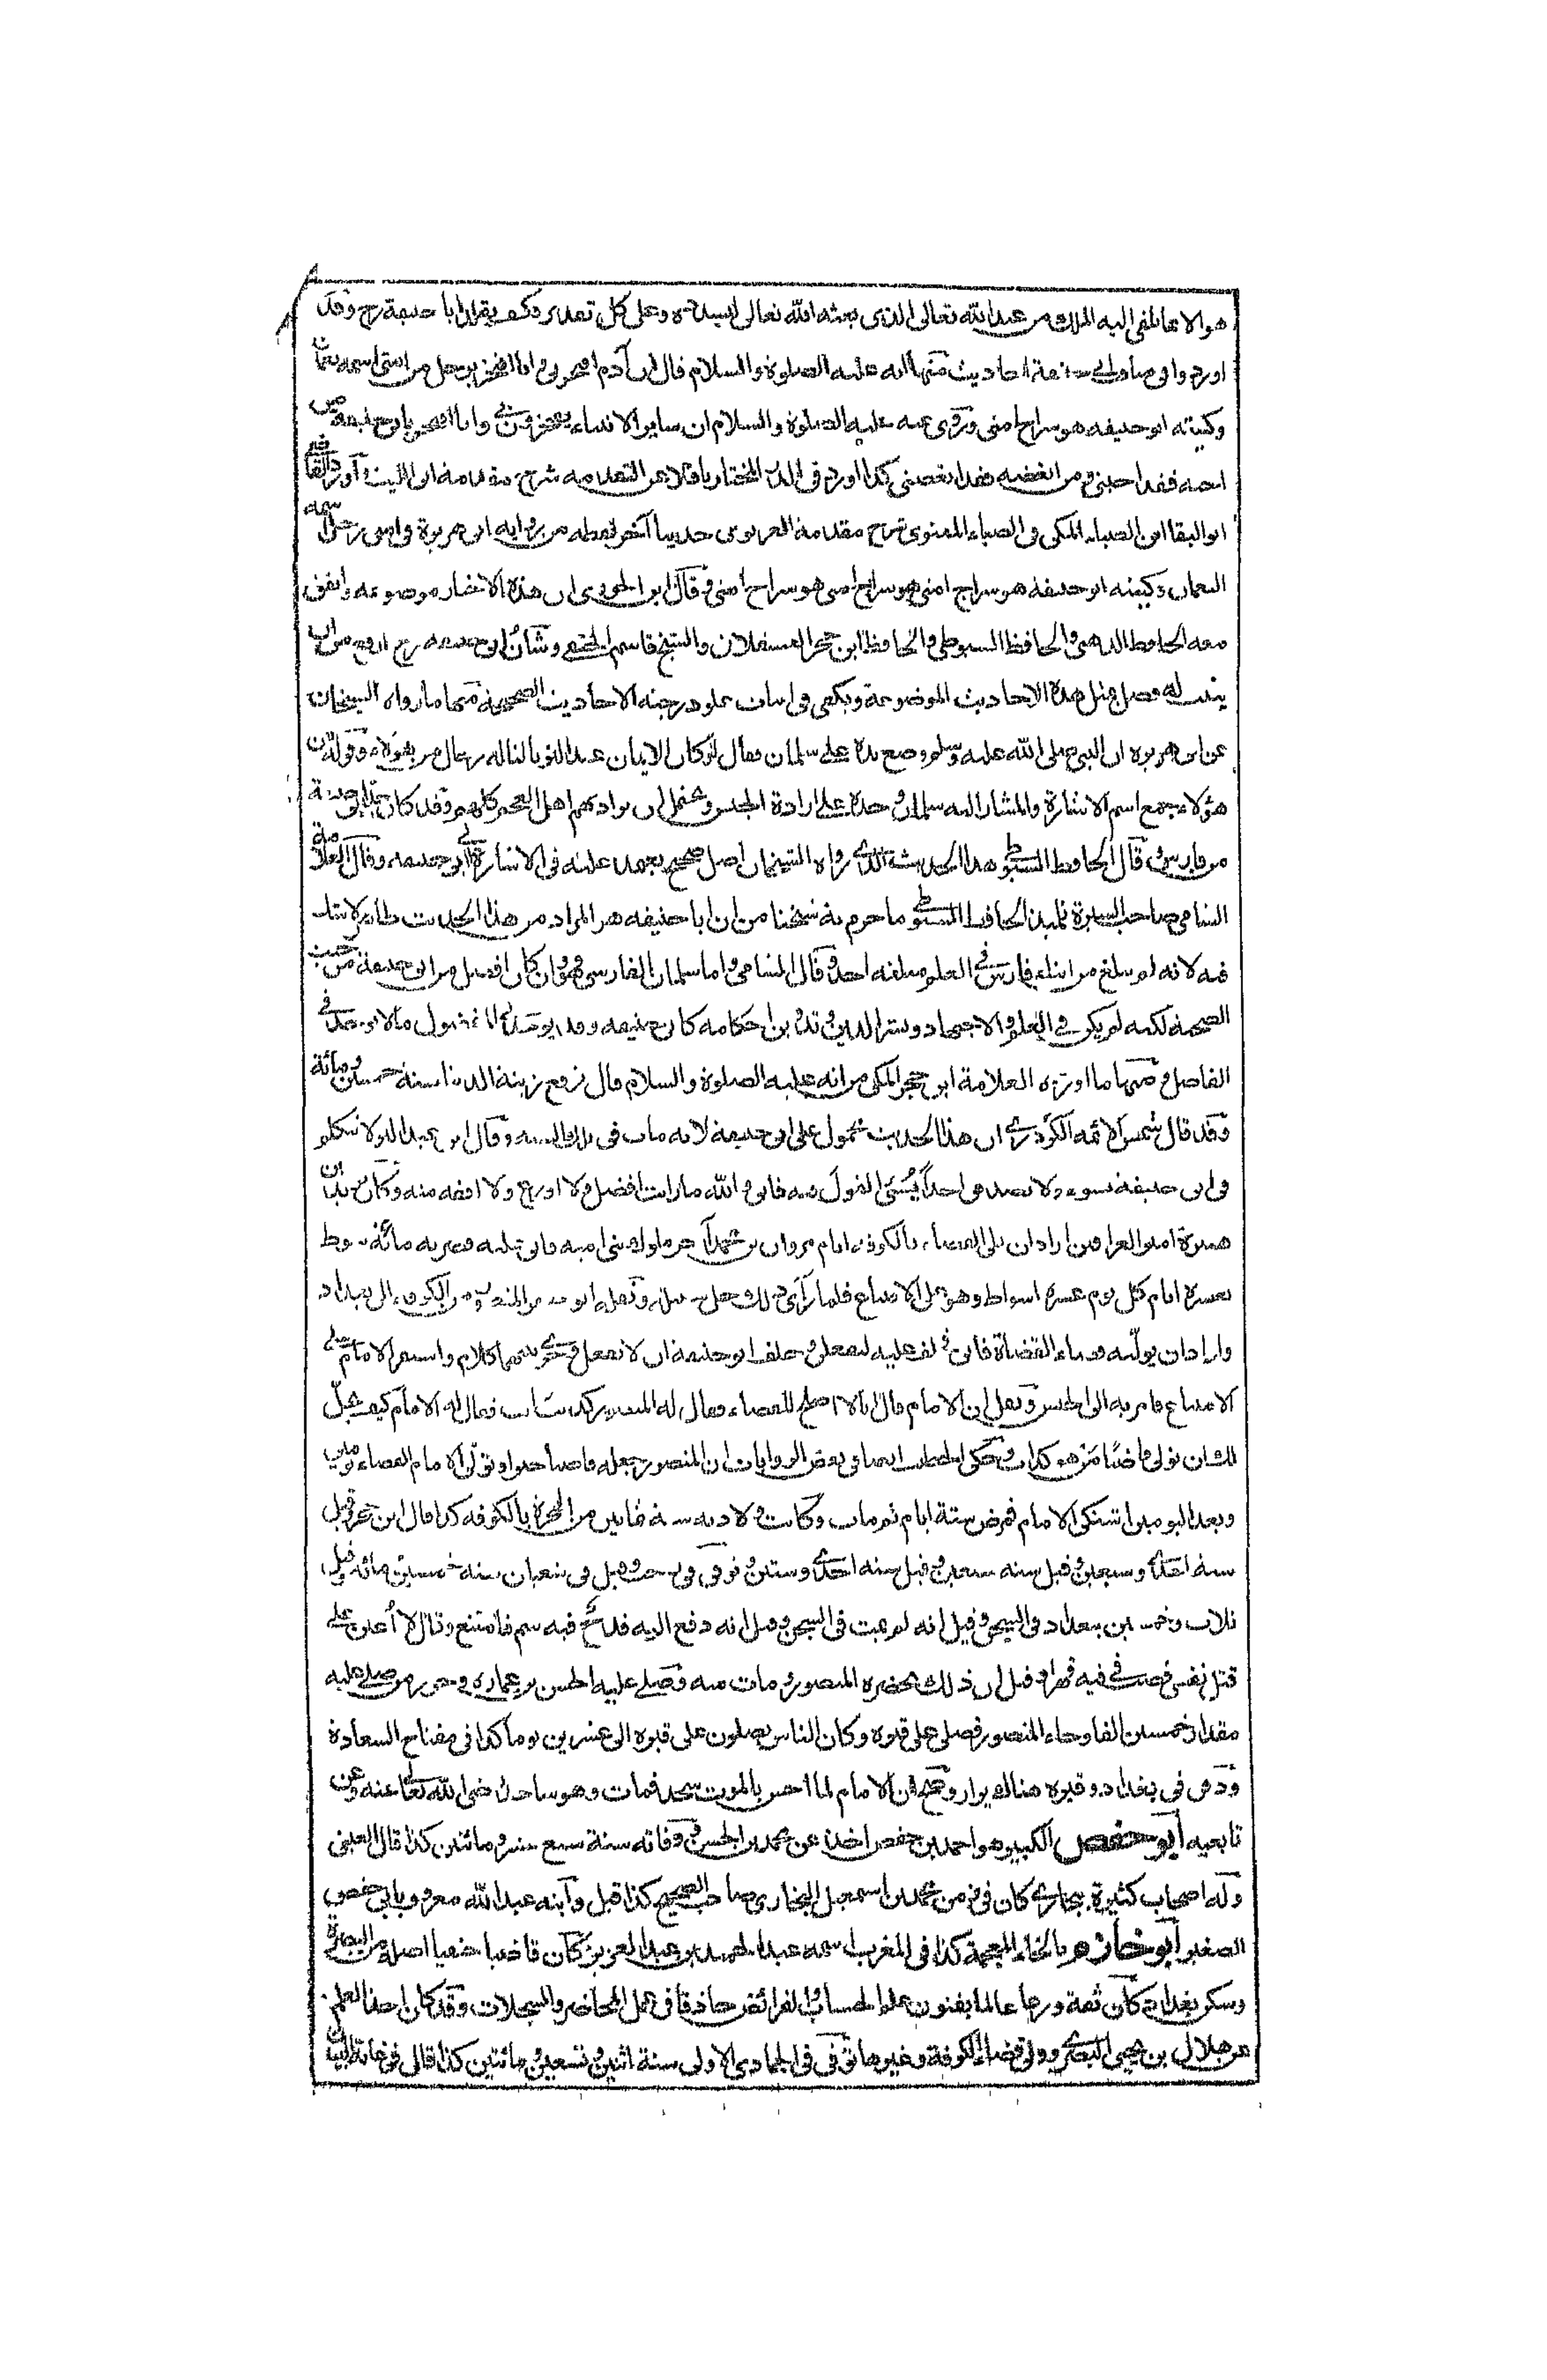 هو الا ما يلقى اليه الملك من عند الله تعالى الذى بعثه الله تعالى اليه وعلى كل تقدير وكيف يقرا ابا حنيفة رح وقد
اورد وافى احاديث منها انه عليه الصلوة والسلام قال ان آدم افتخر بى وانا افتخر برجل من امتى اسمه نعمان
وكنيته ابو حنيفه هو سراج امتى وروى عنه عليه الصلوة والسلام ان ساير الانبياء يفتخرون بى وانا افتخر بابى حنيفه من
احبه فقد احبنى ومن ابغضه فقد ابغضنى كذا اورده فى الدر المختار ناقلا عن التقدمه شرح مقدمة ابى الليث واورد القاضى
ابو البقا ابن الضياء المكى فى الضياء المعنوى شرح مقدمة الغزنوى حديثا آخر لفظه من رواية ابى هريرة فى امتى رجل اسمه
النعمان وكنيته ابو حنيفه هو سراج امتى هو سراج امتى هو سراج امتى وقال ابن الجوزى ان هذه الاخبار موضوعه واتفق
معه الحافظ الذهبى والحافظ السيوطى والحافظ ابن حجر العسقلانى والشيخ قاسم الحنفى وشان ابو حنيفه رح ارفع من ان
يثبت له فضل مثل هذه الاحاديث الموضوعة ويكفى فى اثبات علو درجته الاحاديث الصحيحة منها ما رواه الشيخان
عن ابى هريرة ان النبى صلى الله عليه وسلم وضع يده على سلمان فقال لو كان الايمان عند الثريا لناله رجال من هؤلاء وقوله من
هؤلاء جمع اسم الاشارة والمشار اليه سلمان وحده على ارادة الجنس ويحتمل ان يراد بهم اهل العجم كلهم وقد كان جد ابى حنيفة
من فارس وقال الحافظ السيوطى هذا الحديث الذى رواه الشيخان اصل صحيح يعتمد عليه فى الاشارة الى ابى حنيفه وقال العلامة
الشامى صاحب السيرة تلميذ الحافظ السيوطى ما جزم به شيخنا من ان ابا حنيفه هو المراد من هذا الحديث ظاهر لا شك
فيه لانه لم يبلغ من ابناء فارس فى العلم مبلغه احد وقال الشامى واما سلمان الفارسى فهو وان كان افضل من ابى حنيفة من حيث
الصحبة لكنه لم يكن فى العلم والاجتهاد ونشر الدين وتدوين احكامه كابى حنيفه وقد يوجد فى المفضول ما لا يوجد فى
الفاضل ومنها ما اورده العلامة ابن حجر المكى من انه عليه الصلوة والسلام قال ترفع زينة الدنيا سنة خمسين ومائة
وقد قال شمس الائمه الكردرى ان هذا الحديث محمول على ابى حنيفة لانه مات فى تلك السنه وقال ابن عبد البر لا تتكلم
فى ابى حنيفه بسوء ولا تصدقن احداً يُسئ القول فيه فانى والله ما رايت افضل ولا اورع ولا افقه منه وكان يزيد بن
هبيرة امير العراقين اراد ان يلى القضاء بالكوفه ايام مروان بن محمد آخر ملوك بنى اميه فابى عليه فضربه مائة سوط
بعشرة ايام كل يوم عشرة اسواط وهو على الامتناع فلما رآى ذلك خلى سبيله ونقله ابو جعفر المنصور من الكوفه الى بغداد
واراد ان يوليه قضاء القضاة فابى فحلف عليه ليفعلن وحلف ابو حنيفة ان لا يفعل وجرى بينهما كلام واستمر الامام على
الامتناع فامر به الى الحبس ونقل ان الامام قال انا لا اصلح للقضاء فقال له المنصور كذبت فقال له الامام كيف يحلّ
لك ان تولى قاضيًا من هو كذاب وحكى الخطيب ايضا فى بعض الروايات ان المنصور جعله قاضيا جبرا وتولى الامام القضاء يومين
وبعد اليومين اشتكى الامام فمرض ستة ايام ثم مات وكانت ولادته سنة ثمانين من الهجرة بالكوفه كذا قال ابن حجر وقيل
سنة احدى وسبعين وقيل سنه سبعين وقيل سنه احدى وستين وتوفى فى رجب وقيل فى شعبان سنه خمسين ومائه وقيل
ثلاث وخمسين ببغداد فى السجن وقيل انه لم يمت فى السجن وقيل انه دفع اليه قدح فيه سم فامتنع وقال لا أعين على
قتل نفسى فصب فى فيه قهرا وقيل ان ذلك بحضرة المنصور ومات منه وصلى عليه الحسن بن عماره وحزر من صلى عليه
مقدار خمسين الفا وجاء المنصور فصلى على قبره وكان الناس يصلون على قبره الى عشرين يوما كذا فى مفتاح السعادة
ودفن فى بغداد وقبره هناك يزار وصح ان الامام لما احس بالموت سجد فمات وهو ساجد رضى الله تعالى عنه وعن
تابعيه ابو حفص الكبير هو احمد بن حفص اخذ عن محمد بن الحسن ووفاته سنة سبع عشر ومائتين كذا قال العينى
وله اصحاب كثيرة ببخارى كان فى زمن محمد بن اسمعيل البخارى صاحب الصحيح كذا قيل وابنه عبد الله معروف بابى حفص
الصغير ابو خازم بالخاء المعجمة كذا فى المغرب اسمه عبد الحميد بن عبد العزيز كان قاضيا حنفيا اصله من البصرة
وسكن بغداد كان ثقة ورعا عالما بفنون علم الحساب والفرائض حاذقا فى عمل المحاضر والسجلات وقد كان اخذ العلم
عن هلال بن يحيى البصرى وولى قضاء الكوفة وغيرها توفى فى الجمادى الاولى سنة اثنين وتسعين ومائتين كذا قال فى غاية البيان